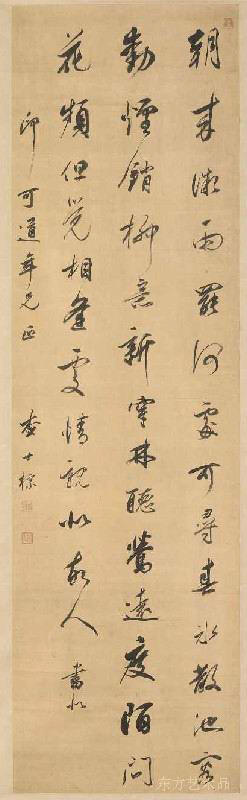 朝来微雨罢何处可寻春冰散池容
动烟销柳意新寒林听莺远度陌问
花频但觉相逢处情亲似故人 书似
印可道年兄正 查士标
东方艺术品